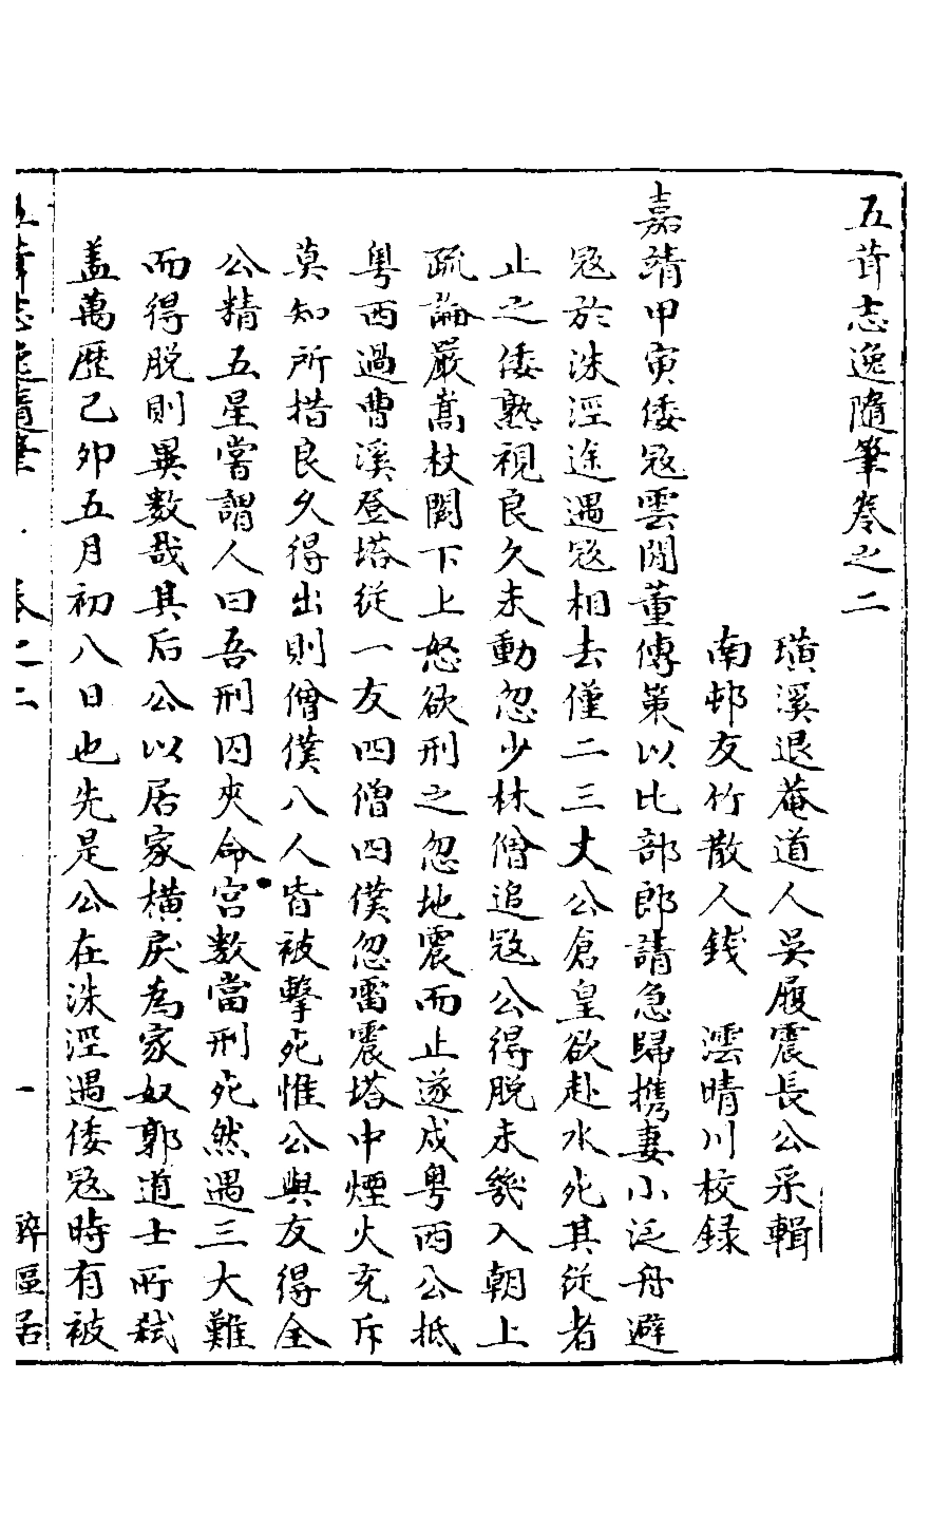 五茸志逸隨筆卷之二
璜溪退菴道人吳履震長公采輯
南邨友竹散人錢　澐晴川校録
嘉靖甲寅倭寇雲間董傳策以比部郎請急歸携妻小泛舟避
寇於洙涇途遇寇相去僅二三丈公倉皇欲赴水死其從者
止之倭熟視良久未動忽少林僧追寇公得脱未幾入朝上
疏論嚴嵩杖闕下上怒欲刑之忽地震而止遂戍粤西公抵
粤西過曹溪登塔従一友四僧四僕忽雷震塔中煙火充斥
莫知所措良久得出則僧僕八人皆被擊死惟公與友得全
公精五星嘗謂人曰吾刑囚夾命宫數當刑死然遇三大難
而得脱則異數哉其后公以居家横戾為家奴郭道士所弑
盖萬歷己卯五月初八日也先是公在洙涇遇倭寇時有被
五茸志逸隨筆　卷之二　一　醉漚居